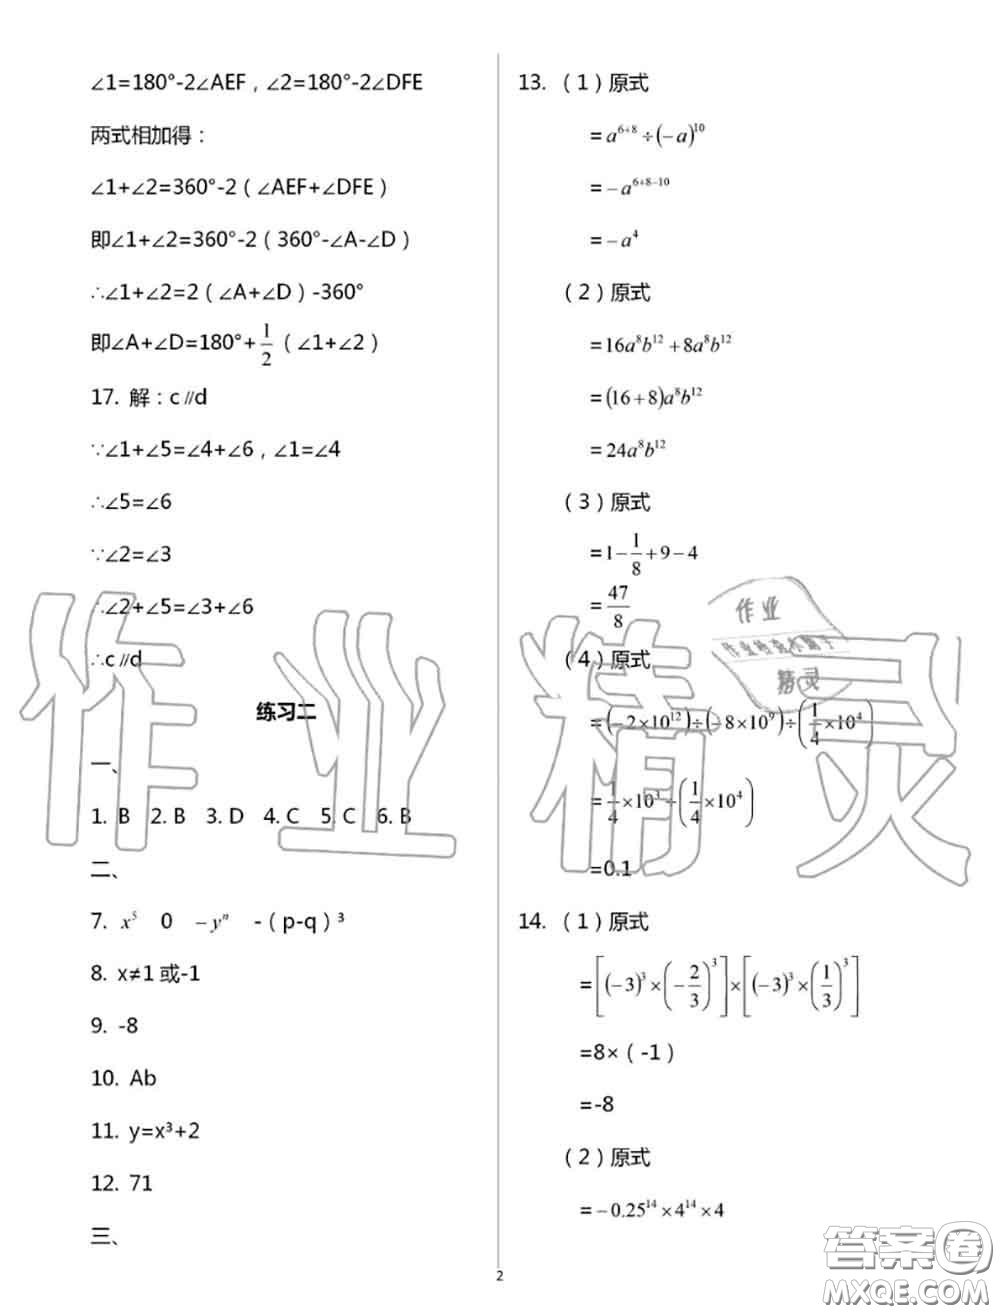 ∠1=180°-2∠AEF，∠2=180°-2∠DFE
两式相加得：
∠1+∠2=360°-2（∠AEF+∠DFE）
即∠1+∠2=360°-2（360°-∠A-∠D）
∴∠1+∠2=2（∠A+∠D）-360°
即∠A+∠D=180°+1/2（∠1+∠2）
17. 解：c∥d
∵∠1+∠5=∠4+∠6，∠1=∠4
∴∠5=∠6
∵∠2=∠3
∴∠2+∠5=∠3+∠6
∴c∥d
练习二
一、
1. B 2. B 3. D 4. C 5. C 6. B
二、
7. x⁵ 0 -yⁿ -（p-q）³
8. x≠1 或-1
9. -8
10. Ab
11. y=x³+2
12. 71
三、
13.（1）原式
=a⁶⁺⁸÷(-a)¹⁰
=-a⁶⁺⁸⁻¹⁰
=-a⁴
（2）原式
=16a⁸b¹²+8a⁸b¹²
=(16+8)a⁸b¹²
=24a⁸b¹²
（3）原式
=1-1/8+9-4
=47/8
（4）原式
=(-2×10¹²)÷(-8×10⁹)÷(1/4×10⁴)
=1/4×10³÷(1/4×10⁴)
=0.1
14.（1）原式
=[(-3)³×(-2/3)³]×[(-3)³×(1/3)³]
=8×（-1）
=-8
（2）原式
=-0.25¹⁴×4¹⁴×4
2
作业精灵
作业
精灵
答案圈
MXQE.COM